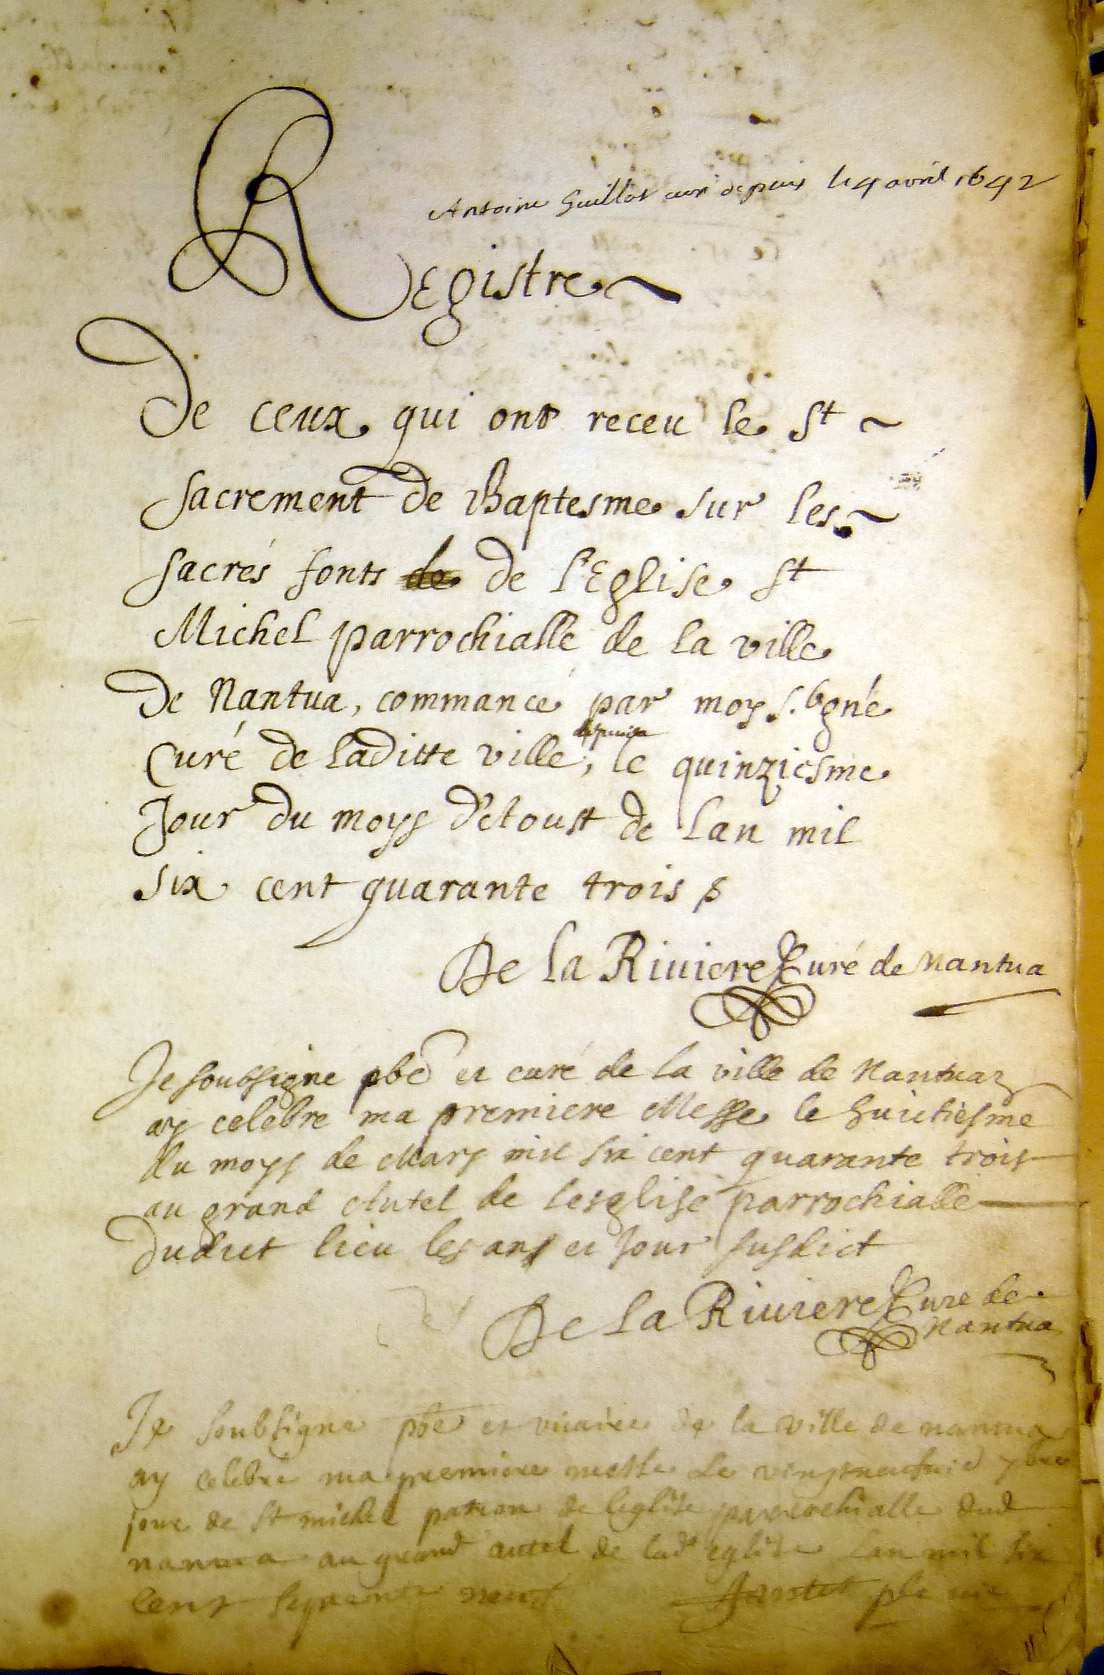 Antoine Guillot curé depuis le 4 avril 1642
Registre
De ceux qui ont receu le St
sacrement de Baptesme sur les
sacrés fonts de de l'Eglise St
Michel parrochialle de la ville
De Nantua, commancé par moy s.bgné
Curé de laditte ville, depuis le quinziesme
Jour du moys d'Aoust de lan mil
six cent quarante trois
De la Riviere Curé de Nantua
Je soubsigne pbre et curé de la ville de Nantua
ay celebre ma premiere Messe le huictiesme
du moys de Mars mil six cent quarante trois
au grand Autel de lesglise parrochialle
dudict lieu les ans et Jour susdict
De la Riviere Cure de
Nantua
Je soubsigne pbre et vicaire de la ville de nantua
ay celebré ma premiere messe le 7bre
jour de St michel patron de leglise parrochialle dud
nantua au grand autel de lad eglise Lan mil six
cent septente neuf pbre vic